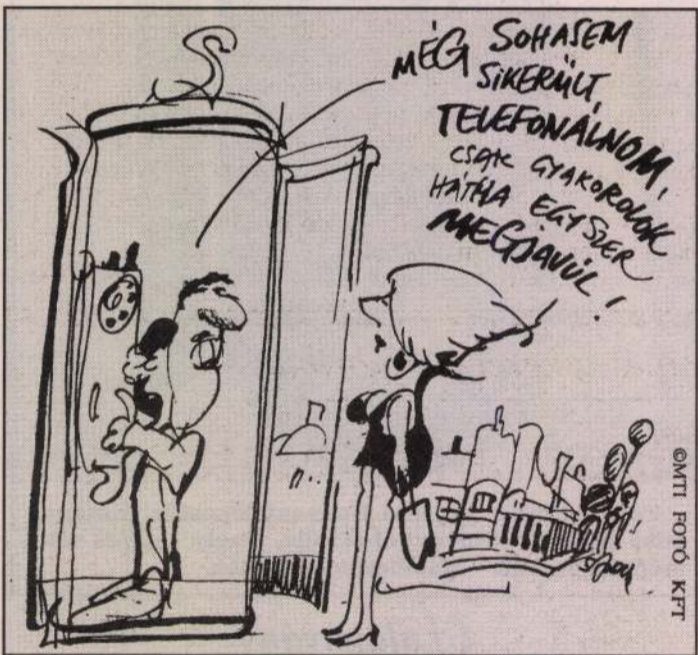 MÉG SOHASEM
SIKERÜLT
TELEFONÁLNOM,
CSAK GYAKOROLOK
HÁTHA EGYSZER
MEGJAVÚL!
©MTI FOTÓ KFT